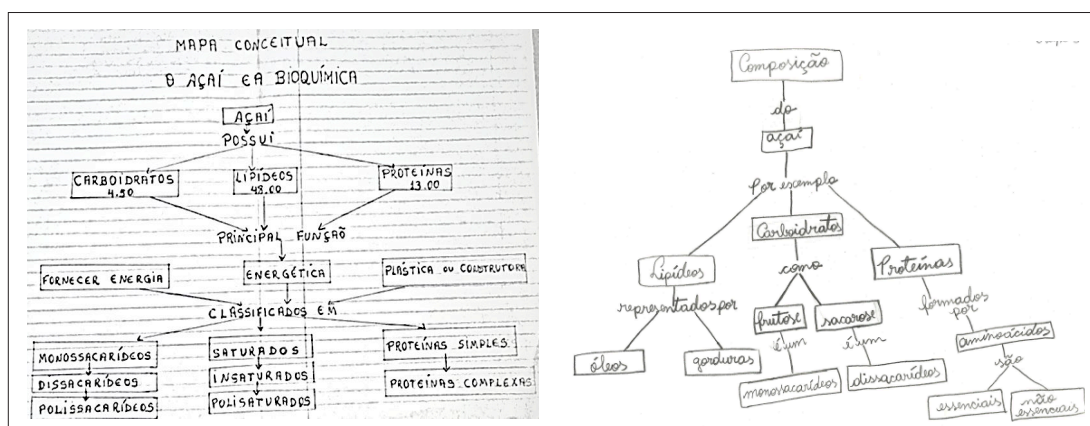 MAPA CONCEITUAL
O AÇAÍ E A BIOQUÍMICA
AÇAÍ
POSSUI
CARBOIDRATOS
4.50
LIPÍDEOS
48.00
PROTEÍNAS
13.00
PRINCIPAL FUNÇÃO
FORNECER ENERGIA
ENERGÉTICA
PLÁSTICA OU CONSTRUTORA
CLASSIFICADOS EM
MONOSSACARÍDEOS
DISSACARÍDEOS
POLISSACARÍDEOS
SATURADOS
INSATURADOS
POLISATURADOS
PROTEÍNAS SIMPLES
PROTEÍNAS COMPLEXAS
Composição
do
açaí
Por exemplo
Lipídeos
Carboidratos
Proteínas
representados por
óleos
gorduras
como
frutose
sacarose
é um
é um
monossacarídeos
dissacarídeos
formados
por
aminoácidos
são
essenciais
não
essenciais